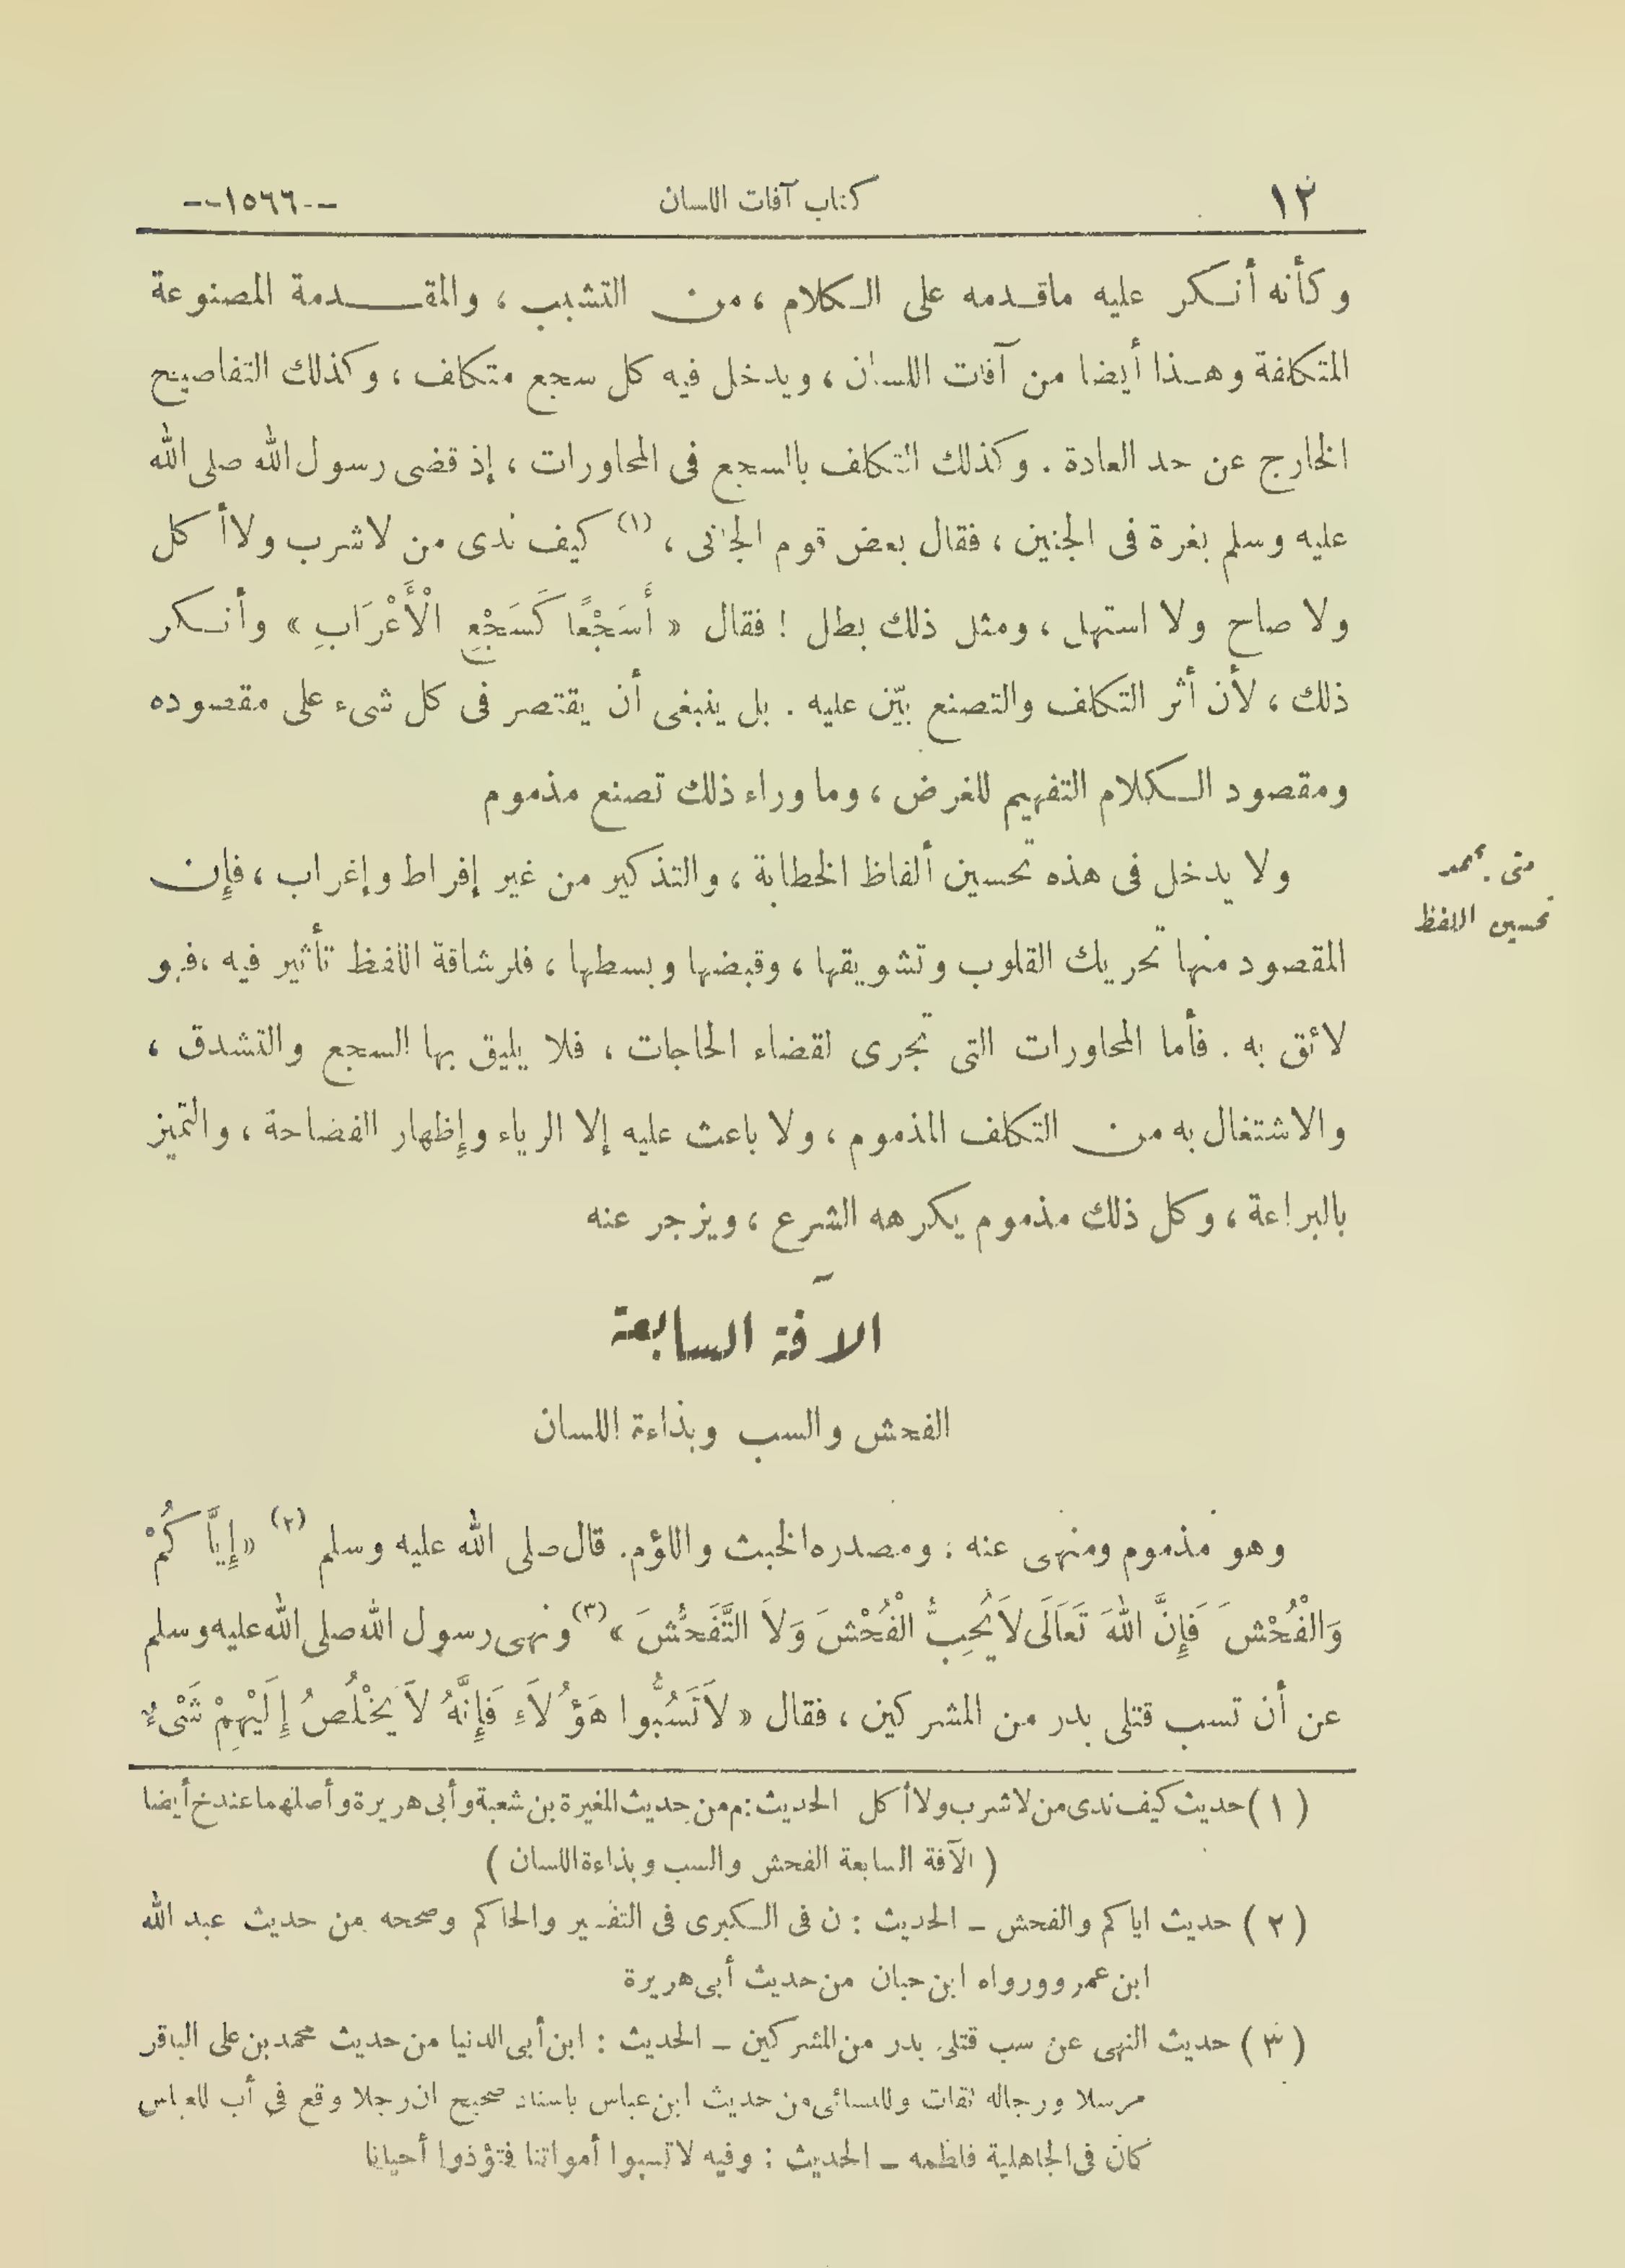 ١٢
كتاب آفات اللسان
--١٥٦٦--
وكأنه أنكر عليه ماقدمه على الكلام ، من التشبب ، والمقدمة المصنوعة
المتكلفة وهذا أيضا من آفات اللسان ، ويدخل فيه كل سجع متكلف ، وكذلك التفاصح
الخارج عن حد العادة . وكذلك التكلف بالسجع فى المحاورات ، إذ قضى رسول الله صلى الله
عليه وسلم بغرة فى الجنين ، فقال بعض قوم الجانى ، (١) كيف ندى من لاشرب ولا أكل
ولا صاح ولا استهل ، ومثل ذلك بطل ! فقال « أَسَجْعًا كَسَجْعِ الْأَعْرَابِ » وأنكر
ذلك ، لأن أثر التكلف والتصنع بيّن عليه . بل ينبغى أن يقتصر فى كل شىء على مقصوده
ومقصود الكلام التفهيم للغرض ، وما وراء ذلك تصنع مذموم
متى يحمد
تحسين اللفظ
ولا يدخل فى هذه تحسين ألفاظ الخطابة ، والتذكير من غير إفراط وإغراب ، فإن
المقصود منها تحريك القلوب وتشويقها ، وقبضها وبسطها ، فلرشاقة اللفظ تأثير فيه ، فهو
لائق به . فأما المحاورات التى تجرى لقضاء الحاجات ، فلا يليق بها السجع والتشدق ،
والاشتغال به من التكلف المذموم ، ولا باعث عليه إلا الرياء وإظهار الفصاحة ، والتميز
بالبراعة ، وكل ذلك مذموم يكرهه الشرع ، ويزجر عنه
الآفة السابعة
الفحش والسب وبذاءة اللسان
وهو مذموم ومنهى عنه : ومصدره الخبث واللؤم. قال صلى الله عليه وسلم (٢) « إِيَّاكُمْ
وَالْفُحْشَ فَإِنَّ اللهَ تَعَالَى لاَ يُحِبُّ الْفُحْشَ وَلاَ التَّفَحُّشَ » (٣) ونهى رسول الله صلى الله عليه وسلم
عن أن تسب قتلى بدر من المشركين ، فقال « لاَتَسُبُّوا هَؤُلاَءِ فَإِنَّهُ لاَ يَخْلُصُ إِلَيْهِمْ شَىْءٌ
(١) حديث كيف ندى من لاشرب ولا أكل الحديث : م من حديث المغيرة بن شعبة وأبى هريرة وأصلهما عند خ أيضا
( الآفة السابعة الفحش والسب وبذاءة اللسان )
(٢) حديث اياكم والفحش ـ الحديث : ن فى الكبرى فى التفسير والحاكم وصححه من حديث عبد الله
ابن عمرو ورواه ابن حبان من حديث أبى هريرة
(٣) حديث النهى عن سب قتلى بدر من المشركين ـ الحديث : ابن أبى الدنيا من حديث محمد بن على الباقر
مرسلا ورجاله ثقات وللنسائى من حديث ابن عباس باسناد صحيح ان رجلا وقع فى أب للعباس
كان فى الجاهلية فلطمه ـ الحديث : وفيه لاتسبوا أمواتنا فتؤذوا أحيانا